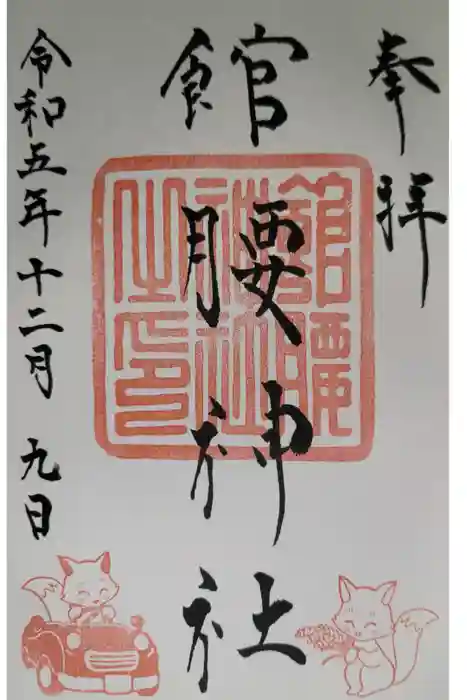 奉拝
館腰神社
令和五年十二月九日
館腰神社之印